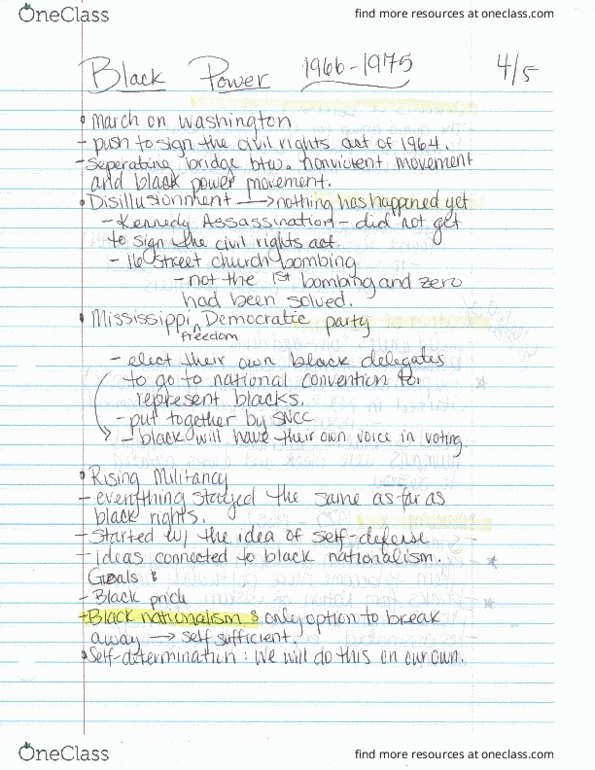 OneClass
find more resources at oneclass.com
Black Power 1966-1975 4/5
• March on Washington
- push to sign the civil rights act of 1964.
- Seperating bridge btw. nonviolent movement
and black power movement.
• Disillusionment → nothing has happened yet
- Kennedy Assassination - did not get
to sign the civil rights act.
- 16 street church bombing
- not the 1st bombing and zero
had been solved.
• Mississippi ^ Democratic party
freedom
- elect their own black delegates
to go to national convention to
represent blacks.
- put together by SNCC
→ - black will have their own voice in voting.
• Rising Militancy
- everything stayed the same as far as
black rights.
- Started w/ the idea of self-defense
- Ideas connected to black nationalism.
Goals :
- Black pride
- Black nationalism : only option to break
away → self sufficient.
• Self-determination : We will do this on our own.
OneClass
find more resources at oneclass.com